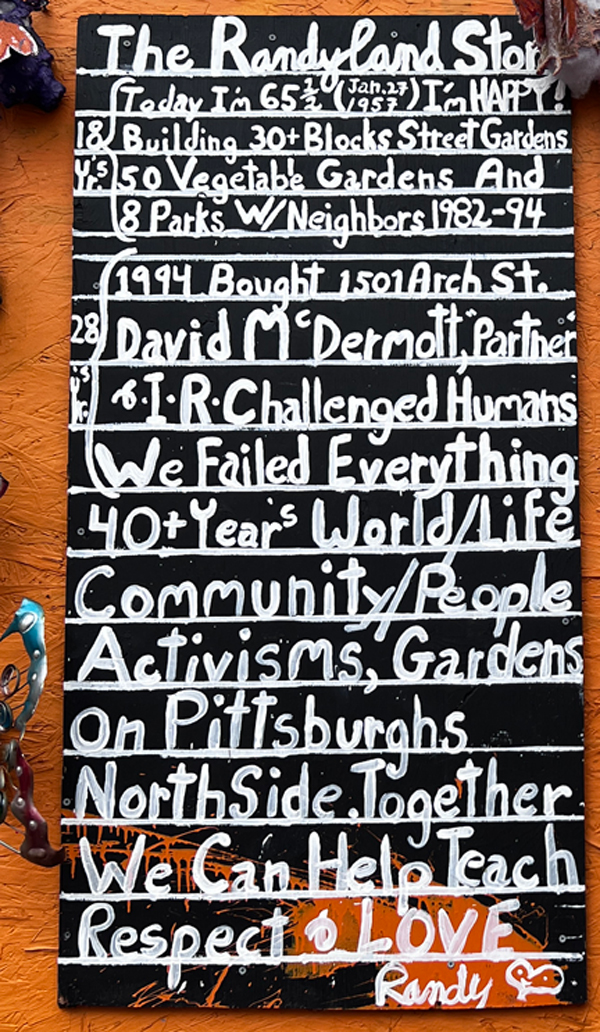 The Randyland Stor
Today I'm 65 1/2 (Jan. 27 1957) I'm HAPPY!
18 Building 30+ Blocks Street Gardens
Yr.s 50 Vegetable Gardens And
8 Parks W/Neighbors 1982-94
1994 Bought 1501 Arch St.
28 David McDermott, "Partner"
Yr.s & I.R. Challenged Humans
We Failed Everything
40+ Year's World/Life
Community/People
Activisms, Gardens
on Pittsburghs
NorthSide. Together
We Can Help Teach
Respect & LOVE
Randy